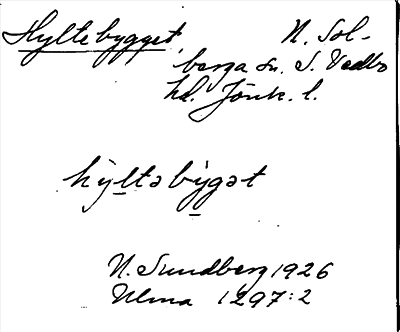 Hyltebygget, N. Sol-
berga sn. S. Vedbo
hd. Jönk. l.
hỳltəbỳgət
N. Sundberg 1926
Ulma 1297:2